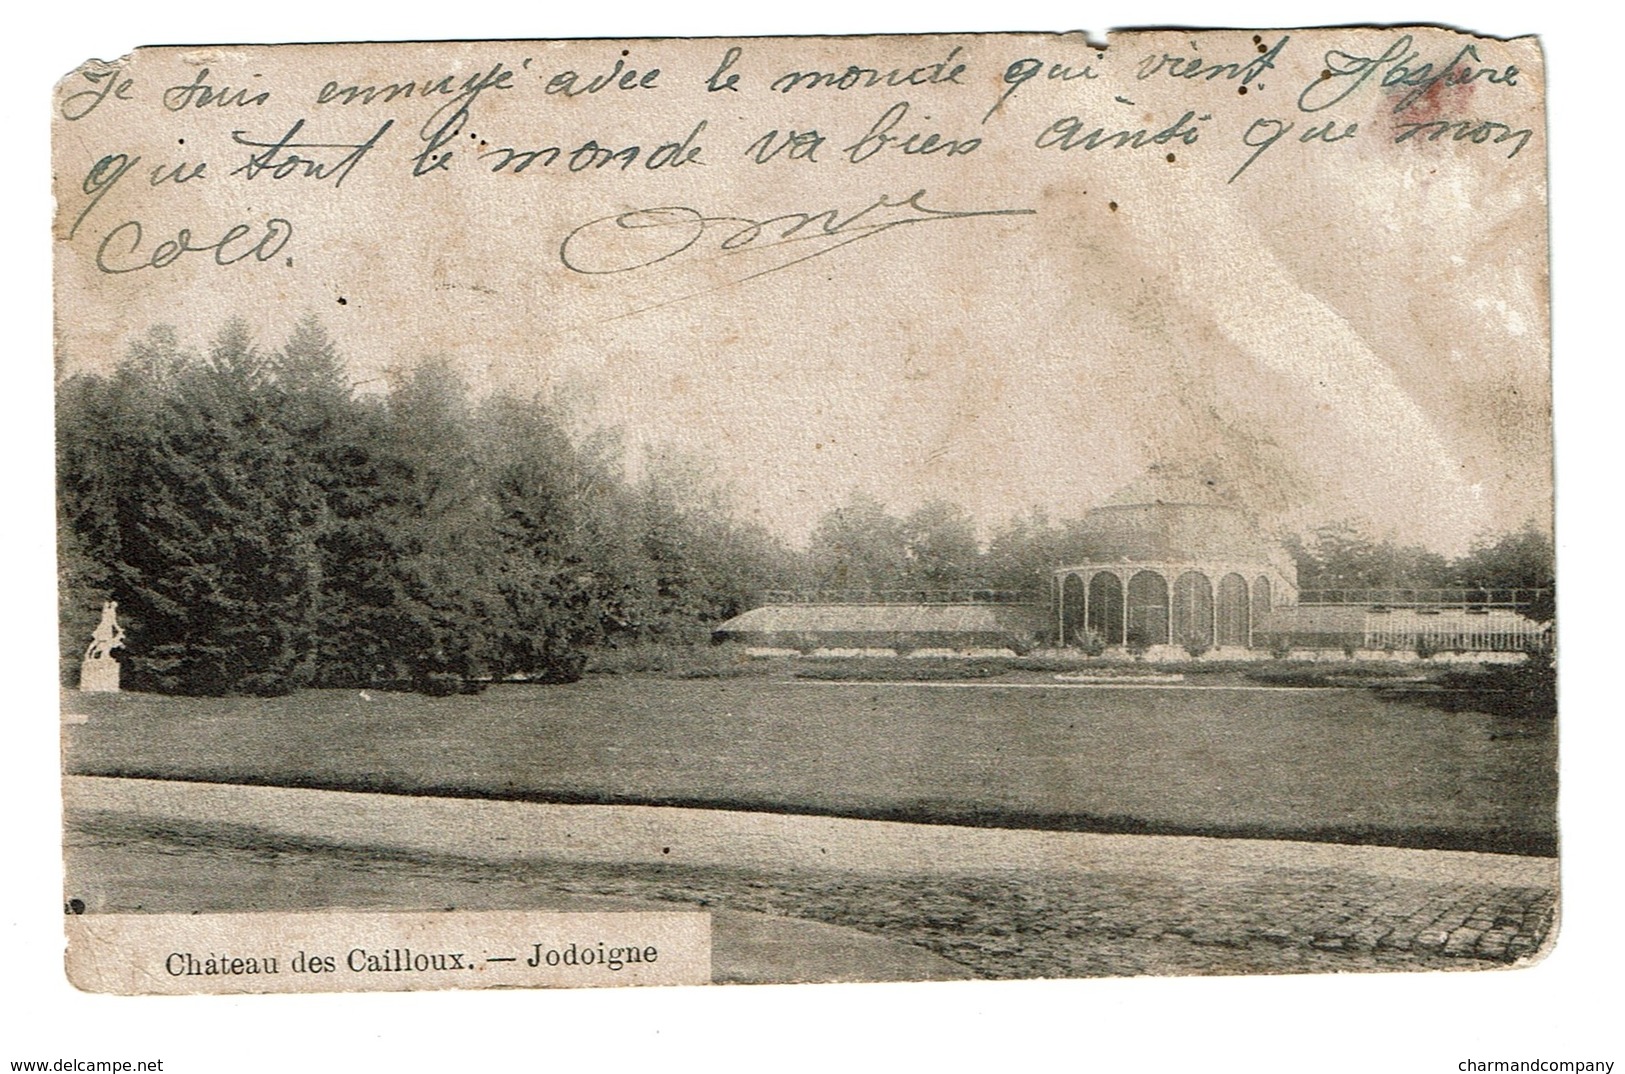 Je suis ennuyé avec le monde qui vient. J'espère
que tout le monde va bien ainsi que mon
coco.
Château des Cailloux. — Jodoigne
www.delcampe.net
charmandcompany